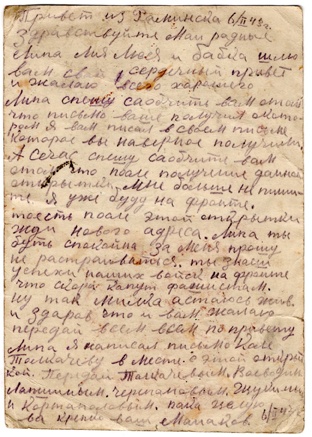 Привет из Халинска 6/II 43 г.
Здравствуйте Маи радные
Липа Лия Люся и бабка шлю
вам свой сердечный привет
и желаю всего харошего
Липа спешу саобчить вам о той
что письмо ваше получил о кото
ром я вам писал в своем письме
которое вы наверное получили.
А сечас спешу саобчить вам
что после получение данной
открытки мне больше не пиши
те я уже буду на фронте.
тоесть после этой открытки
жди нового адреса. Липа ты
будь спокойна за меня прошу
не растраивайся. ты знаеш
успехи наших войск на фронте
что скоро капут фашистам.
ну так милка астаюсь жив
и здаров, что и вам желаю
передай всем всем по привету
Липа я написал письмо Коле
Толкачеву в месте с этой открыт
кой. Передай Толкачевым, Воеводин
Лапшиным, черепановым, Щукиным
и Корталоловым, пока целую
вас крепко ваш Малахов. 6/II 43